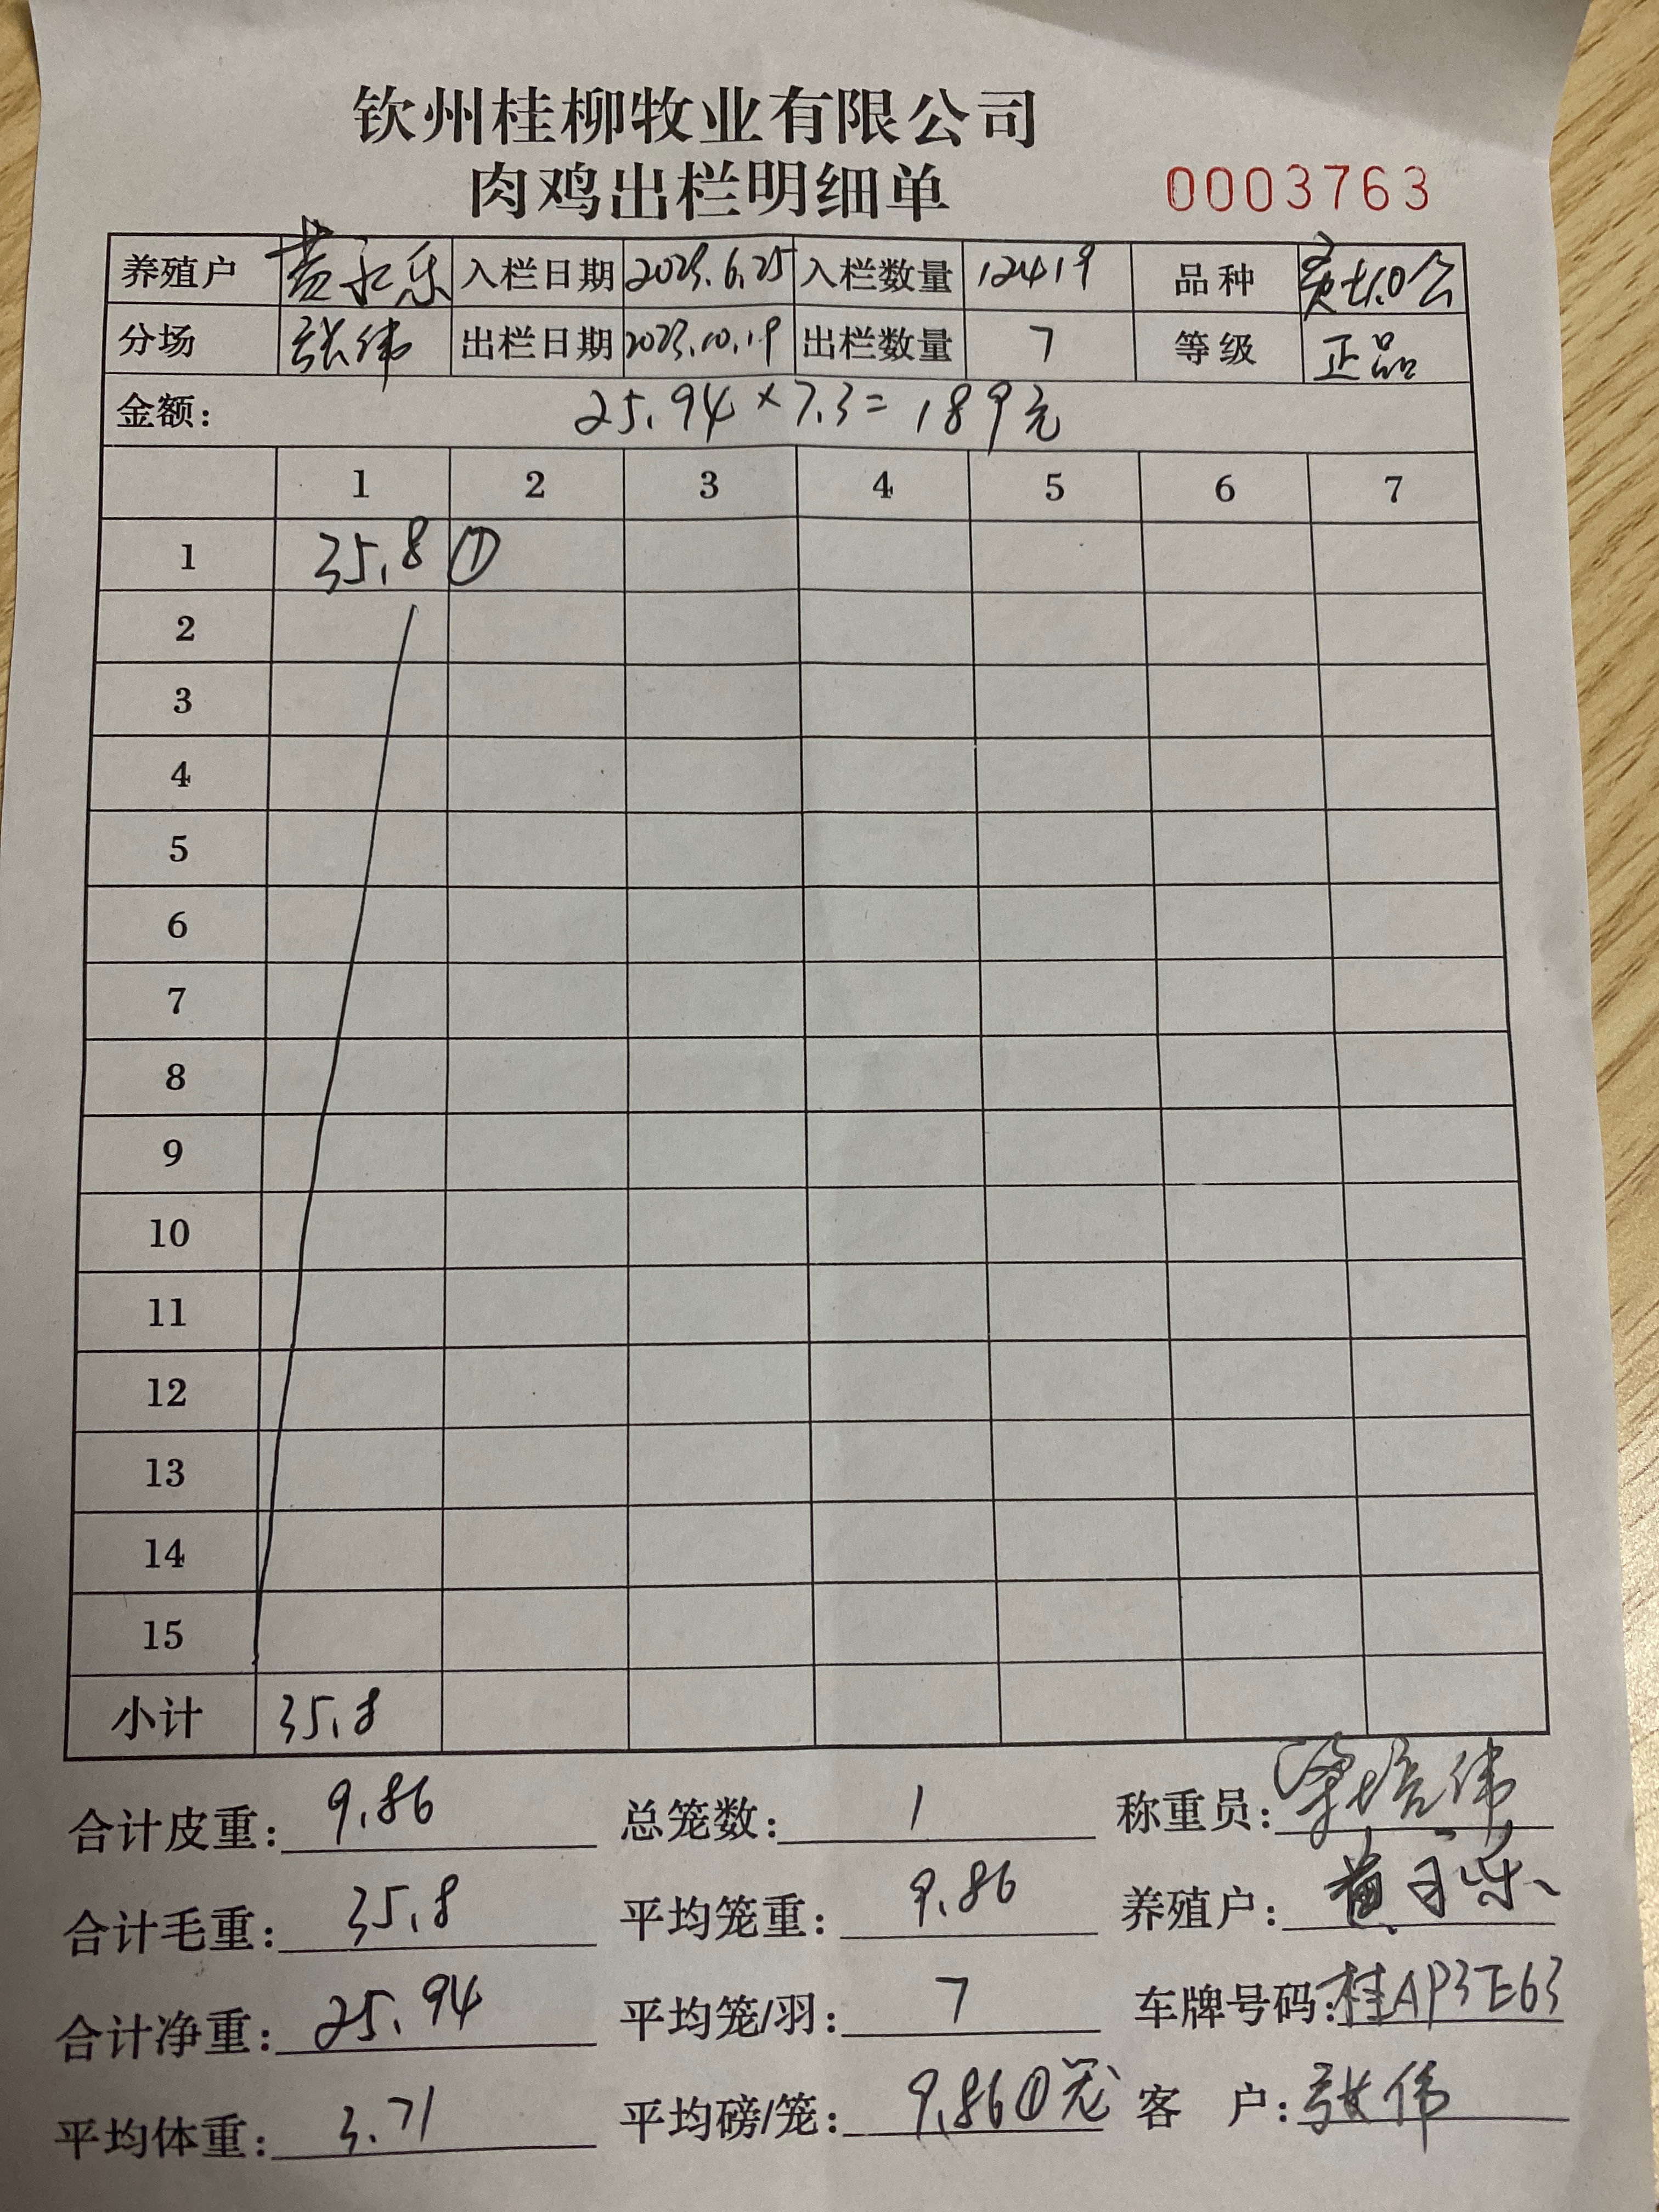 钦州桂柳牧业有限公司
肉鸡出栏明细单 0003763
养殖户 黄永乐 入栏日期 2023.6.25 入栏数量 12419 品种
分场 张伟 出栏日期 2023.10.19 出栏数量 7 等级 正品
金额: 25.94×7.3=189元
1 2 3 4 5 6 7
1 35.8 ①
2
3
4
5
6
7
8
9
10
11
12
13
14
15
小计 35.8
合计皮重: 9.86 总笼数: 1 称重员: 梁培伟
合计毛重: 35.8 平均笼重: 9.86 养殖户: 黄永乐
合计净重: 25.94 平均笼/羽: 7 车牌号码: 桂AP3E63
平均体重: 3.71 平均磅/笼: 9.86①笼 客 户: 张伟